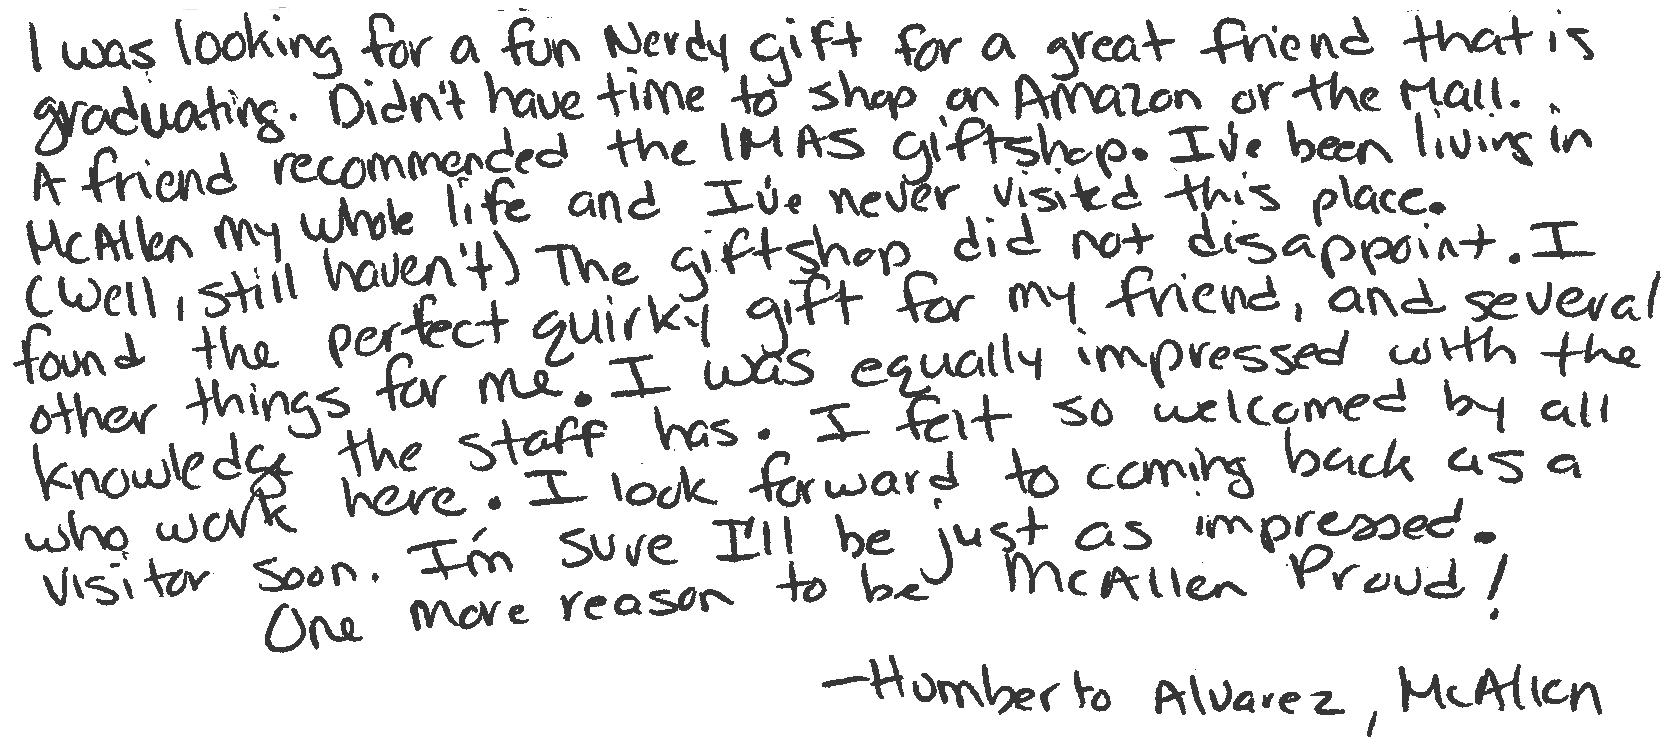 I was looking for a fun Nerdy gift for a great friend that is
graduating. Didn't have time to shop on Amazon or the Mall.
A friend recommended the IMAS giftshop. I've been living in
McAllen my whole life and I've never visited this place.
(Well, still haven't) The giftshop did not disappoint. I
found the perfect quirky gift for my friend, and several
other things for me. I was equally impressed with the
knowledge the staff has. I felt so welcomed by all
who work here. I look forward to coming back as a
visitor soon. I'm sure I'll be just as impressed.
One more reason to be McAllen Proud!
—Humberto Alvarez, McAllen